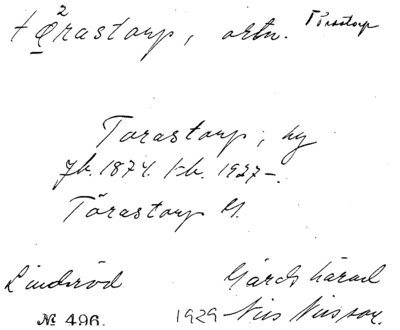 tǫ̈²rastorp, ortn. Törastorp
Torastorp, by
Jb. 1874. kb. 1927–.
Törastorp G.
Linderöd Gärds härad
№ 496. 1929 Nils Nilsson.